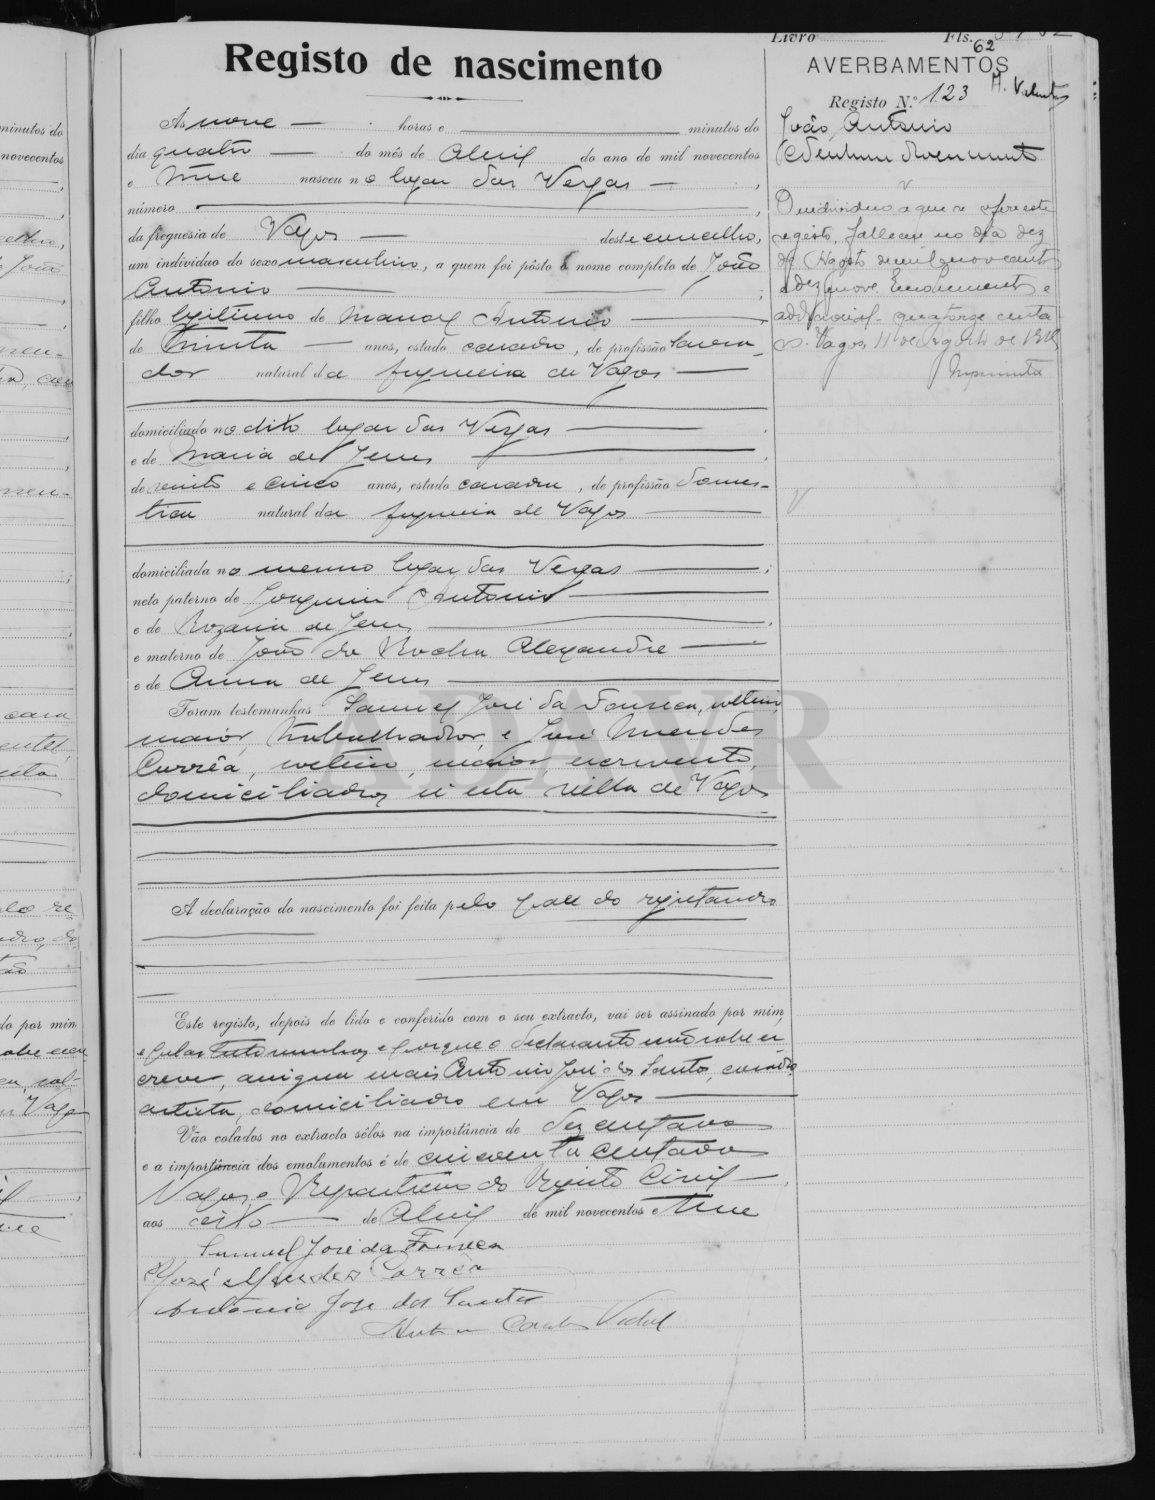 Livro Fls. 62
Registo de nascimento
AVERBAMENTOS
Registo N.º 123
João Antonio
Ás nove horas e minutos do
dia quatro do mês de Abril do ano de mil novecentos
e treze nasceu no lugar das Vergas,
número
da freguesia de Vagos deste concelho,
um individuo do sexo masculino, a quem foi pôsto o nome completo de João
Antonio
filho legitimo de Manoel Antonio
de trinta anos, estado casado, de profissão lavra-
dor natural da freguesia de Vagos
domiciliado no dito lugar das Vergas
e de Maria de Jesus
de vinte e cinco anos, estado casada, de profissão domes-
tica natural da freguesia de Vagos
domiciliada no mesmo lugar das Vergas;
neto paterno de Joaquim Antonio
e de Rozaria de Jesus,
e materno de João da Rocha Alexandre
e de Anna de Jesus
Foram testemunhas Samuel José da Fonseca, solteiro,
maior, trabalhador, e José Mendes
Corrêa, solteiro, maior, escrevente,
domiciliados n'esta villa de Vagos
A declaração do nascimento foi feita pelo pae do registando
Este registo, depois de lido e conferido com o seu extracto, vai ser assinado por mim,
e pelas testemunhas e porque o declarante não sabe es
crever, assigna mais Antonio José dos Santos, casado,
artista, domiciliado em Vagos
Vão colados no extracto sêlos na importância de dez centavos
e a importância dos emolumentos é de cincoenta centavos
Vagos e Repartição do Registo Civil,
aos oito de Abril de mil novecentos e treze
Samuel José da Fonseca
José Mendes Corrêa
Antonio José dos Santos
O individuo a que se refere este
registo, falleceu no dia dez
de Agosto de mil novecentos
e dezenove. Emolumentos e
adicional quatorze centa-
vos. Vagos, 11 de Agosto de 1919
ADAVR